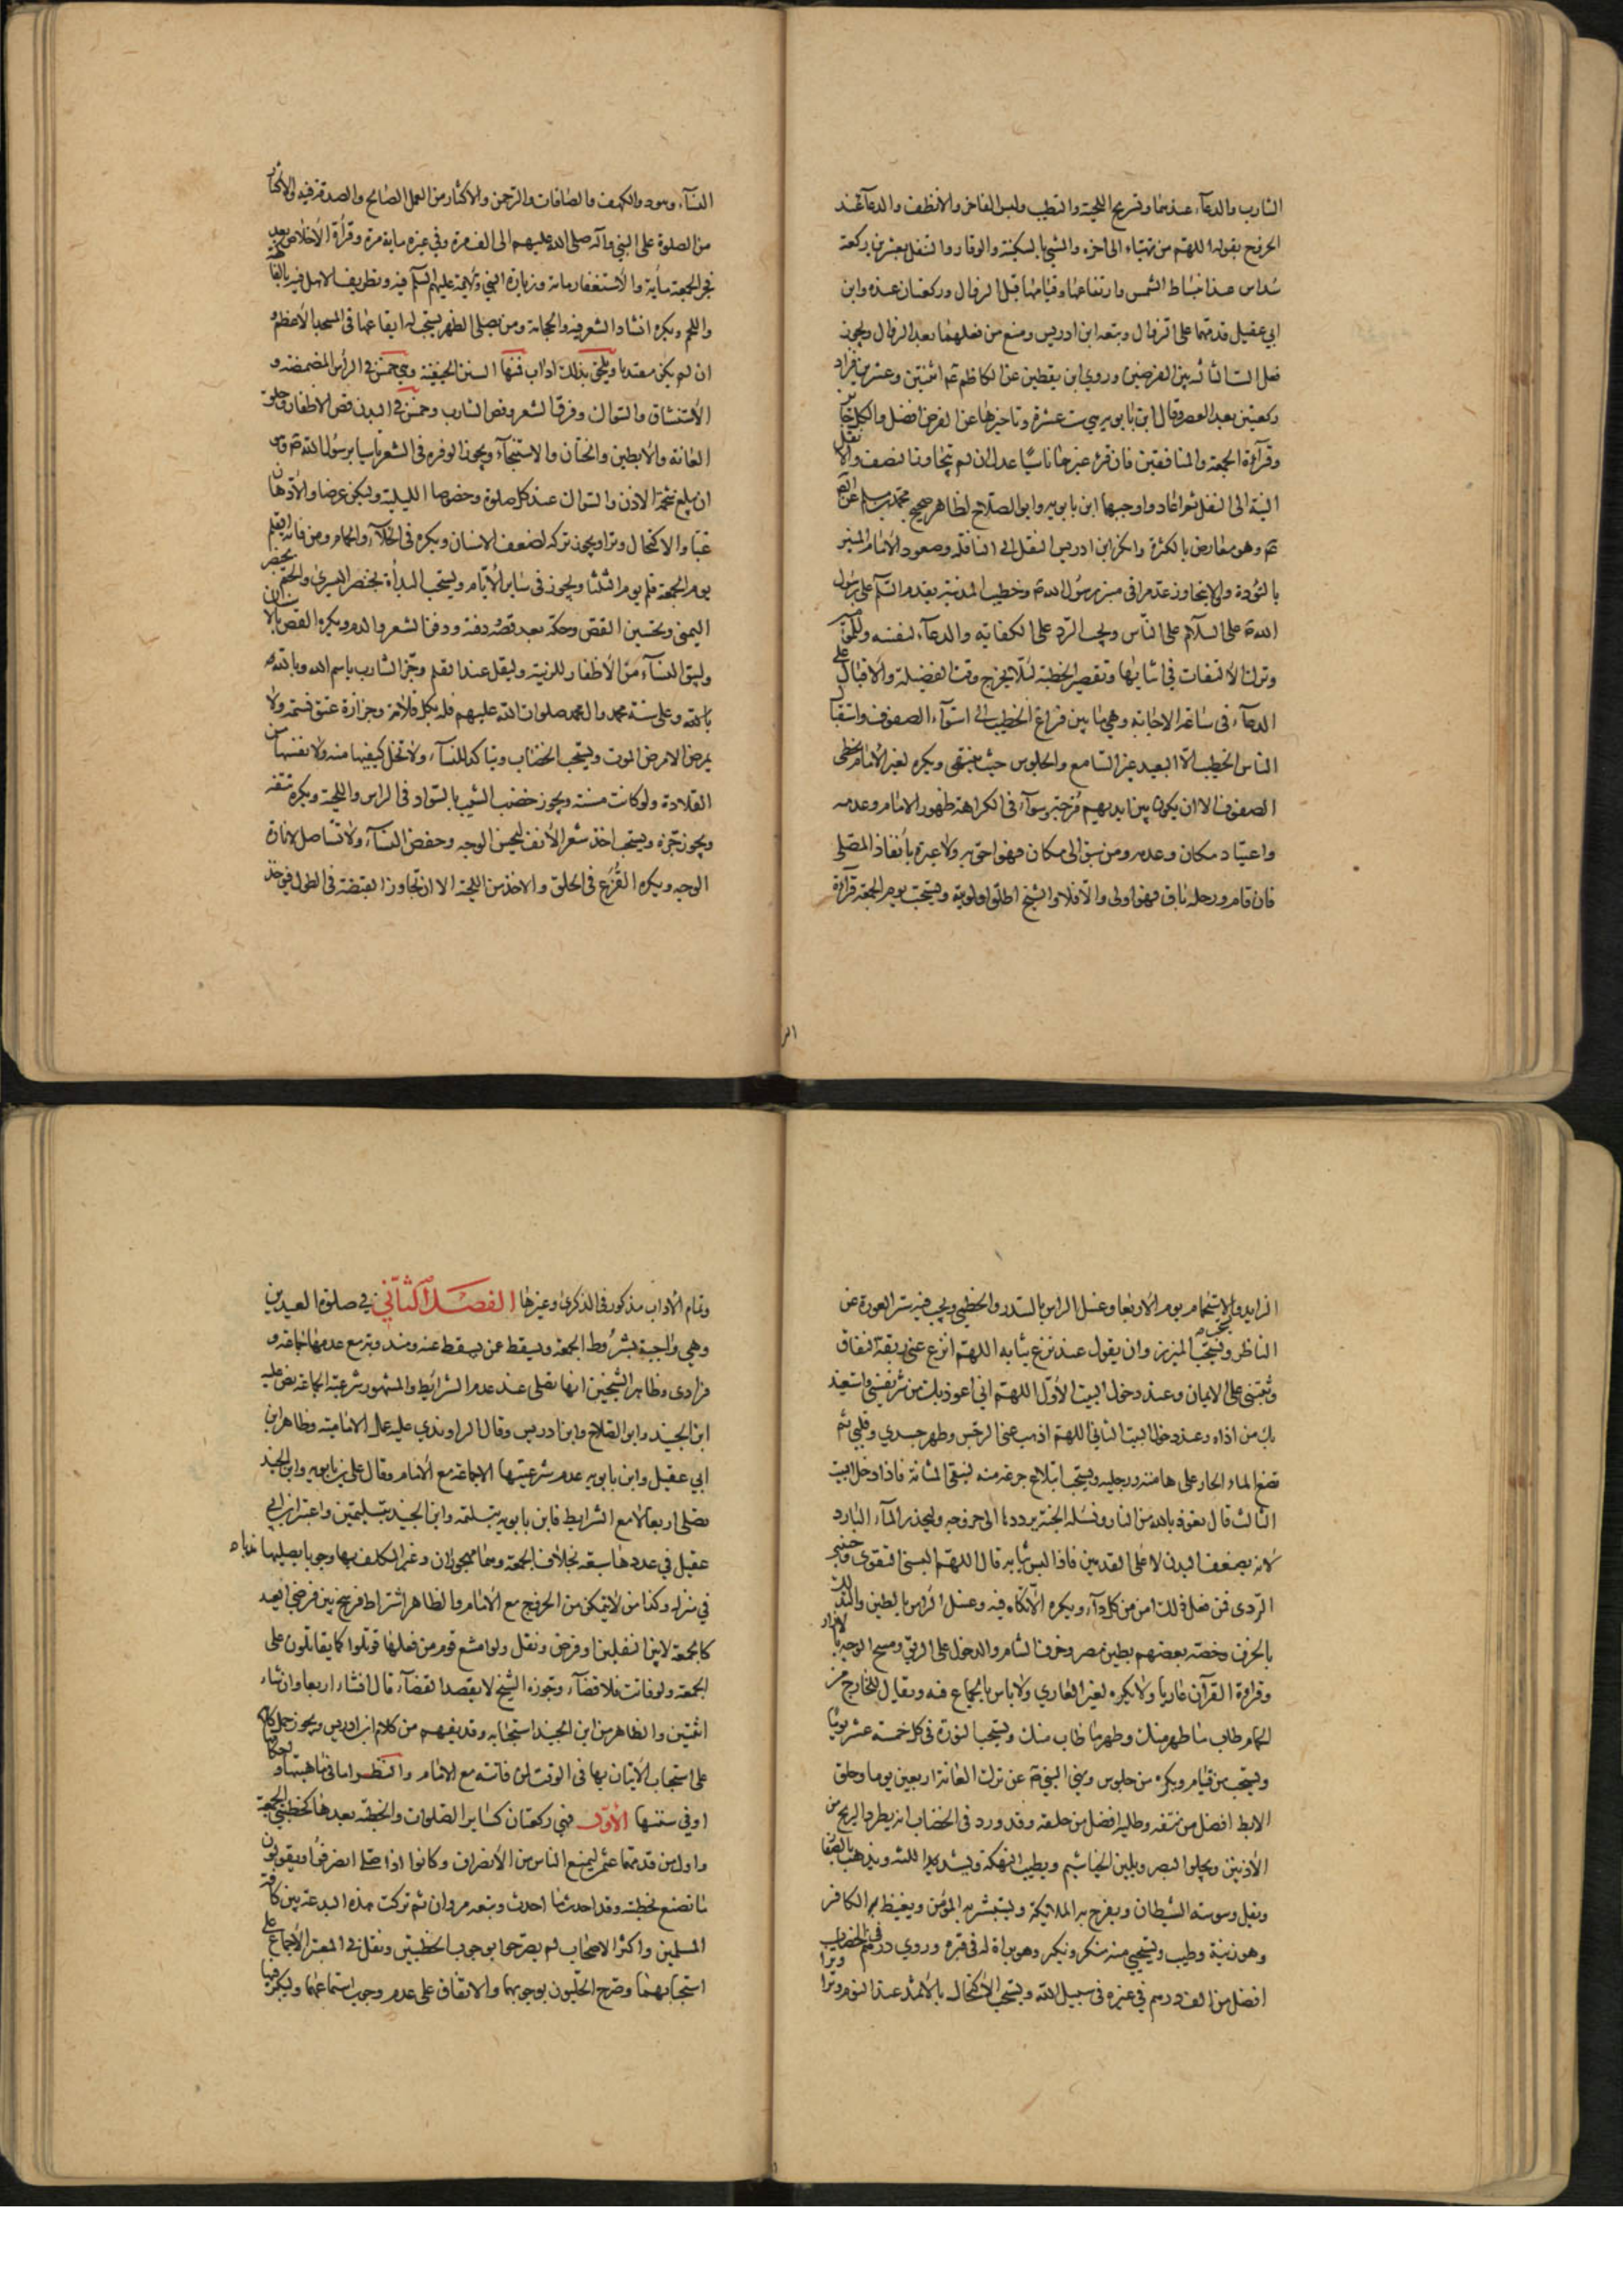 الشارب والدعاء عندهما وتسريح اللحية والتطيب ولبس الفاخر والانظف والدعاء عند
الخروج بقوله اللهم من تهيّاء الى اخره والمشي بالسكينة والوقار والتنفل بعشرين ركعة
سداس عند انبساط الشمس وارتفاعها وقيامها قبل الزوال وركعتان عنده وابن
ابي عقيل قدمهما على الزوال وتبعه ابن ادريس ومنع من فعلهما بعد الزوال ويجوز
فعل الستا بين الفرضين وروى ابن يقطين عن الكاظم عم اثنتين وعشرين بافراد
ركعتين بعد العصر وقال ابن بابويه هي ست عشرة وتاخيرها عن الفرض افضل والكل جايز
وقرآءة الجمعة والمنافقين فان قرء غيرهما ناسيا عدل ان لم يتجاوز النصف والا نقل
النية الى النفل ثم اعاد واوجبهما ابن بابويه وابو الصلاح لظاهر صحيح محمد بن مسلم عن الصادق
عم وهو معارض بالكثرة وانكر ابن ادريس النقل الى النافلة وصعود الامام المنبر
بالتؤدة والا يتجاوز عدم راقى منبر رسول الله ص وخطيب المدينة يقدم السلام على رسول
الله ص على السلام على الناس ويجب الرد على الكفاية والدعاء لنفسه وللمؤمنين
وترك الالتفات في اثنائها وتقصير الخطبة لئلا يخرج وقت الفضيلة والاقبال على
الدعاء في ساعة الاجابة وهي ما بين فراغ الخطيب الى استوآء الصفوف واستقبال
الناس الخطيب الا البعيد غير السامع والجلوس حيث ينتهى ويكره لغير الامام تخطى
الصفوف الا ان يكون بين ايديهم فرجة وسوآء في الكراهة ظهور الامام وعدمه
واعتياد مكان وعدمه ومن سبق الى مكان فهو احق به ولا عبرة بانفاذ المصلى
فان قام ورحله باق فهو اولى والا فلا والشيخ اطلق اولويته ويستحب يوم الجمعة قرآءة
النسآء وهود والكهف والصافات والرحمن والاكثار من العمل الصالح والصدقة فيه والاكثار
من الصلوة على النبي وآله صلى الله عليهم الى الف مرة وفي غيره مائة مرة وقرأة الاخلاص بعد
فجر الجمعة مأية والاستغفار مائة وزيارة النبي والائمة عليهم السلم فيه وتطريف الاهل فيه بالفاكهة
واللحم ويكره انشاد الشعر فيه والحجامة ومن يصلى الظهر يستحب له ايقاعها في المسجد الاعظم و
ان لم يكن مقتديا ويلحق بذلك اداب فمنها السنن الحنيفية وهي خمس في الرأس المضمضة و
الاستنشاق والسواك وفرق الشعر وقص الشارب وخمس في البدن قص الاظفار وحلق
العانة والابطين والختان والاستنجآء ويجوز الوفرة في الشعر تاسيا برسول الله ص
ان بلغ شحمة الاذن والسواك عند كل صلوة وخصوصا الليلية وليكن عرضا والادهان
غبا والاكتحال وترا ويجوز تركه لضعف الاسنان ويكره في الخلآء والحمام ومن فاته القلم
يوم الجمعة قلم يوم الثلثا ويجوز في ساير الايام ويستحب البدأة بخنصر اليسرى والختم بخنصر
اليمنى وتحسين القص وحكه بعد قصه ودفنه ودفن الشعر والدم ويكره القص بالاسنان
وليبق النسآء من الاظفار للزينة وليقل عند القلم وجز الشارب باسم الله وبالله
وعلى سنة محمد وال محمد صلوات الله عليهم فله بكل قلامة وجزازة عتق نسمة ولا
يمرض الا مرض الموت ويستحب الخضاب ويتاكد للنسآء ولا تخل كفيها منه ولا نفسها من
القلادة ولو كانت مسنة ويجوز خضب الشيب بالسواد في الراس واللحية ويكره نتفه
ويجوز جزه ويستحب اخذ شعر الانف ليحسن الوجه وخفض النسآء ولا تستاصل لانارة
الوجه ويكره القزع في الحلق والاخذ من اللحية الا ان تتجاوز القبضة في الطول فيوخذ
الزايد والاستحمام يوم الاربعا وغسل الراس بالسدر والخطمي ويجب فيه ستر العورة عن
الناظر ويستحب الميزر وان يقول عند نزع ثيابه اللهم انزع عني ربقة النفاق
وثبتني على الايمان وعند دخول البيت الاول اللهم اني اعوذ بك من شر نفسي واستعيذ
بك من اذاه وعند دخول البيت الثاني اللهم اذهب عني الرجس وطهر جسدي وقلبي ثم
تضع الماء الحار على هامته ورجليه ويستحب ابتلاع جرعة منه لتنقى المثانة فاذا دخل البيت
الثالث قال نعوذ بالله من النار ونسئله الجنة يرددها الى خروجه وليحذر المآء البارد
لانه يضعف البدن لا على القدمين فاذا لبس ثيابه قال اللهم البسني التقوى وجنبني
الردى فمن فعل ذلك امن من كل دآء ويكره الاتكاء فيه وغسل الراس بالطين والتدلك
بالخزف وخصه بعضهم بطين مصر وخزف الشام والدخول على الريق ومسح الوجه بالازار
وقراءة القرآن عاريا ولا يكره لغير العاري ولا باس بالجماع فيه ويقال للخارج من
الحمام طاب ما طهر منك وطهر ما طاب منك ويستحب النورة في كل خمسة عشر يوما
ويستحب من قيام ويكره من جلوس ونهي النبي ص عن ترك العانة اربعين يوما وحلق
الابط افضل من نتفه وطليه افضل من حلقه وقد ورد في الخضاب انه يطرد الريح من
الاذنين ويجلو البصر ويلين الخياشيم ويطيب النكهة ويشد اللثة ويذهب بالصفار
ويقل وسوسة الشيطان ويفرح به الملائكة ويستبشر به المؤمن ويغيظ به الكافر
وهو زينة وطيب ويستحيي منه منكر ونكير وهو براة له في قبره وروي درهم في الخضاب
افضل من الف درهم في غيره في سبيل الله ويستحب الاكتحال بالاثمد عند النوم وترا
وتمام الاداب مذكور في الذكرى وغيرها الفصل الثاني في صلوة العيدين
وهي واجبة بشروط الجمعة ويسقط عن من يسقط عنه ومندوبة مع عدمها جماعة و
فرادى وظاهر الشيخين انها تصلى عند عدم الشرائط والمشهور شرعية الجماعة نص عليه
ابن الجنيد وابو الصلاح وابن ادريس وقال الراوندي عليه عمل الامامية وظاهر ابن
ابي عقيل وابن بابويه عدم شرعيتها الا جماعة مع الامام وقال علي بن بابويه وابن الجنيد
تصلى اربعا لا مع الشرايط فابن بابويه بتسليمة وابن الجنيد بتسليمتين واعتبر ابن ابي
عقيل في عددها سبعة بخلاف الجمعة وهما محجوجان وغير المكلف بها وجوبا يصليها ندبا
في منزله وكذا من لا يتمكن من الخروج مع الامام والظاهر اشتراط فرسخ بين فرضي العيد
كالجمعة لا بين نفلين او فرض ونفل ولو امتنع قوم من فعلها قوتلوا كما يقاتلون على
الجمعة ولو فاتت فلا قضآء وجوزه الشيخ لا بقصد القضآء قال ان شاء اربعا وان شاء
اثنتين والظاهر من ابن الجنيد استحبابه وقد يفهم من كلام ابن ادريس ويجوز حمل كلامهم
على استحباب الاتيان بها في الوقت لمن فاتته مع الامام والنظر اما في ماهيتها
او في سننها الاول فهي ركعتان كساير الصلوات والخطبة بعدها كخطبتي الجمعة
واول من قدمهما عثمن ليمنع الناس من الانصراف وكانوا اذا صلى انصرفوا ويقولون
ما نصنع بخطبته وقد احدث ما احدث وتبعه مروان ثم تركت هذه البدعة بين كافة
المسلمين واكثر الاصحاب لم يصرحوا بوجوب الخطبتين ونقل في المعتبر الاجماع على
استحبابهما وصرح الحليون بوجوبهما والاتفاق على عدم وجوب استماعهما وليكن